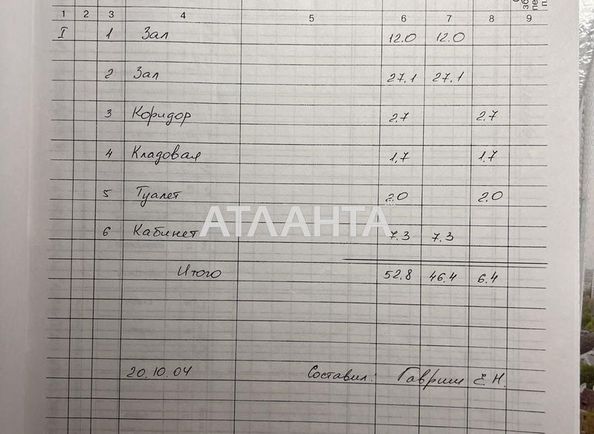 1 2 3 4 5 6 7 8 9
I 1 Зал 12.0 12.0
2 Зал 27.1 27.1
3 Коридор 2.7 2.7
4 Кладовая 1,7 1.7
5 Туалет 2.0 2.0
АТЛАНТА
6 Кабинет 7.3 7.3
Итого 52.8 46.4 6.4
20.10.04 Составил: Гавриш Е.Н.